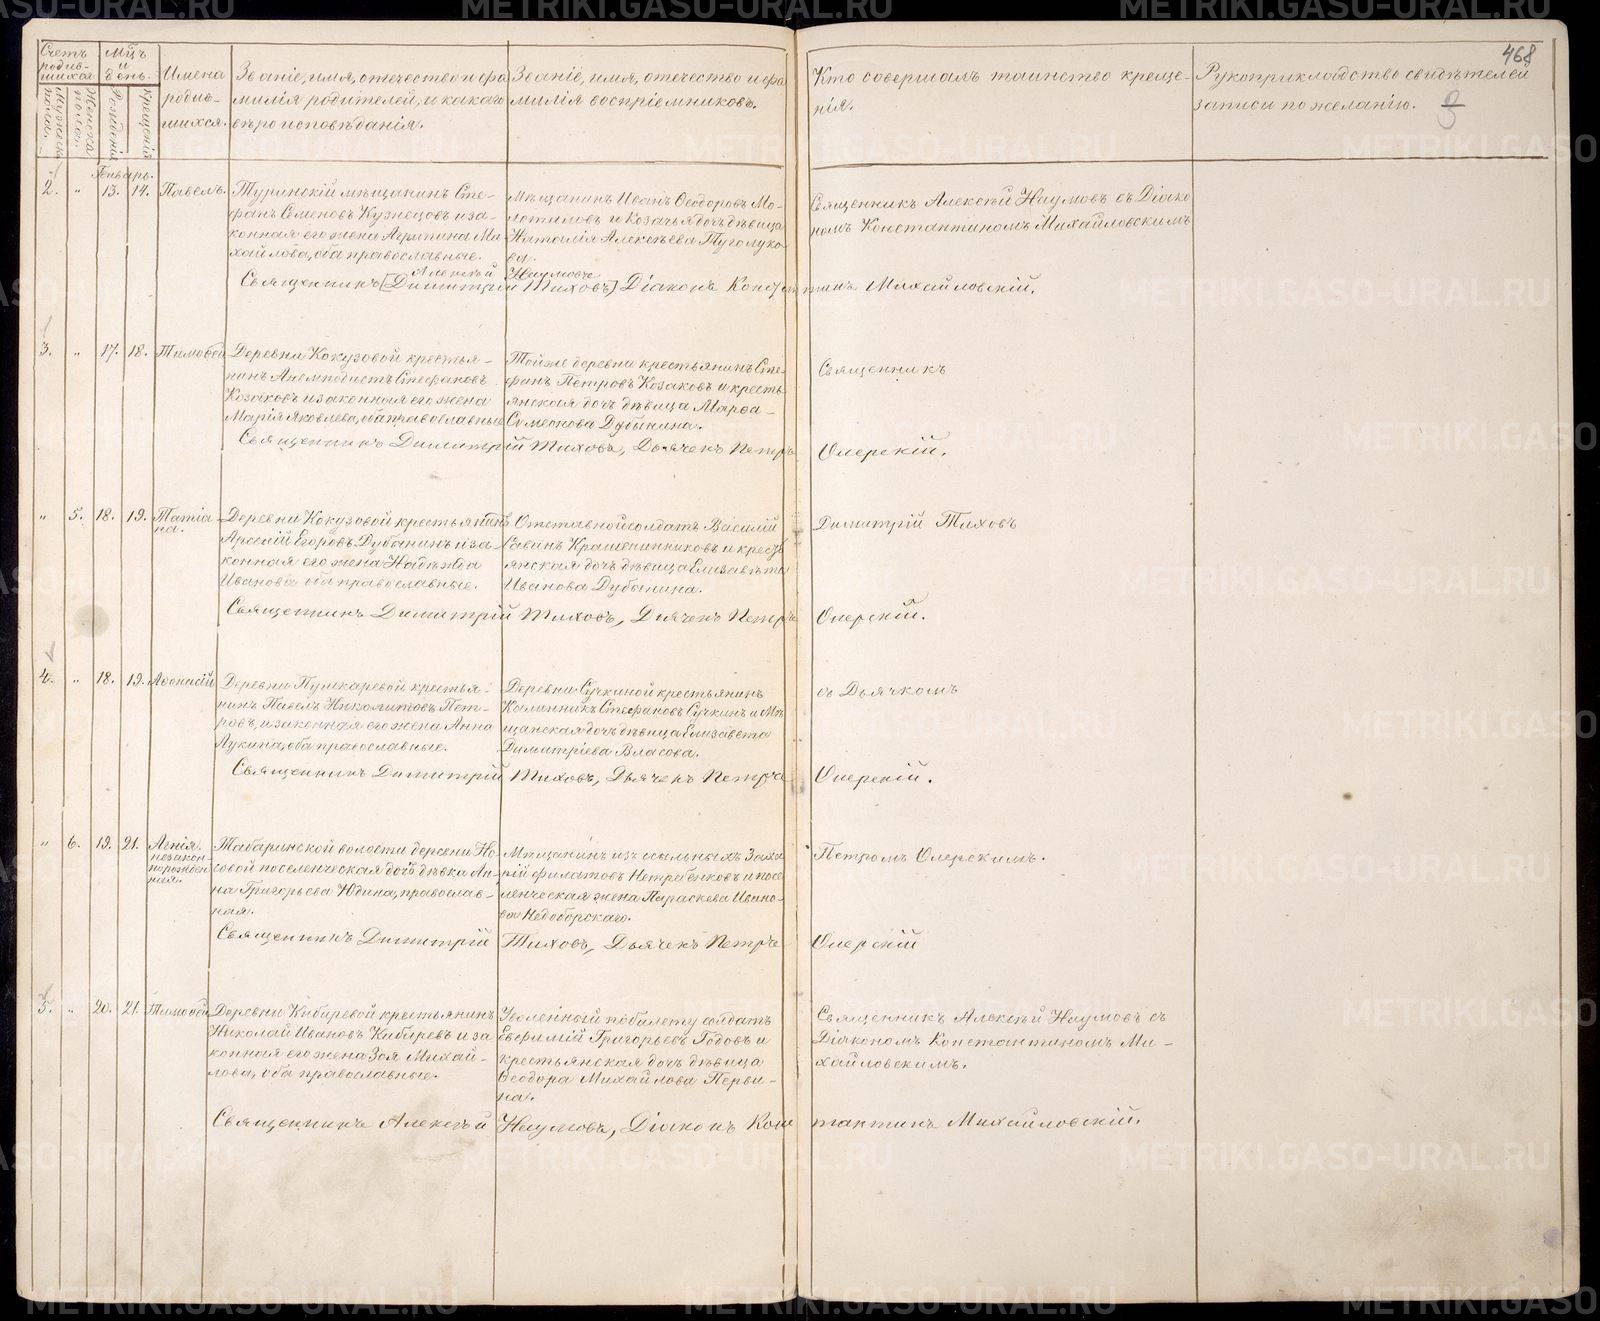 468
Счетъ родив-шихся.
Мужеска пола.
Женска пола.
Мцъ и день.
Рожденія
Крещенія
Имена родив-шихся.
Званіе, имя, отечество и фа-
милія родителей, и какаго
вѣроисповѣданія.
Званіе, имя, отечество и фа
милія воспріемниковъ.
Кто совершалъ таинство креще-
нія.
Рукоприкладство свидѣтелей
записи по желанію.
Январь.
2. " 13. 14. Павелъ.
Туринскій мѣщанинъ Сте-
фанъ Семеновъ Кузнецовъ и за-
конная его жена Агрипина Ми-
хайлова, оба православные.
Мѣщанинъ Иванъ Ѳеодоровъ Мо-
лотиловъ и Козачья дочь дѣвица
Наталія Алексѣева Туголуко-
ва.
Священникъ Алексѣй Наумовъ съ Діако
номъ Константиномъ Михайловскимъ
Алексѣй Наумовъ
Священникъ [Димитрій Тиховъ] Діаконъ Константинъ Михайловскій.
3. " 17. 18. Тимоѳей
Деревни Кокузовой крестья-
нинъ Анемподистъ Стефановъ
Козаковъ и законная его жена
Марія Яковлева, оба православные
Тойже деревни крестьянинъ Сте-
фанъ Петровъ Козаковъ и кресть
янская дочь дѣвица Марѳа
Симеонова Дубынина.
Священникъ
Священникъ Димитрій Тиховъ, Дьячекъ Петръ Олерскій.
" 5. 18. 19. Татіа
на.
Деревни Кокузовой крестьянинъ
Арсеній Егоровъ Дубынинъ и за
конная его жена Надѣжда
Иванова оба православные.
Отставной солдатъ Василій
Савинъ Крашенинниковъ и крест
янская дочь дѣвица Елизавета
Иванова Дубынина.
Димитрій Тиховъ
Священникъ Димитрій Тиховъ, Дьячекъ Петръ Олерскій.
4. " 18. 19. Аѳонасій
Деревни Пушкаревой крестья-
нинъ Павелъ Никопитовъ Пет-
ровъ, и законная его жена Анна
Лукина, оба православные.
Деревни Сучкиной крестьянинъ
Калинникъ Стефановъ Сучкинъ и Мѣ
щанская дочь дѣвица Елизавета
Димитріева Власова.
съ Дьячкомъ
Священникъ Димитрій Тиховъ, Дьячекъ Петръ Олерскій.
" 6. 19. 21. Агнія.
незакон-
норожден
ная.
Табаринской волости деревни Но
совой поселенческая дочь дѣвка Ан-
на Григорьева Юдина, православ-
ная.
Мѣщанинъ изъ ссыльныхъ Заха
рій Филатовъ Нетребенковъ и посе
ленческая жена Параскева Ивано-
ва Недоборскаго.
Петромъ Олерскимъ.
Священникъ Димитрій Тиховъ, Дьячекъ Петръ Олерскій
5. " 20. 21. Тимоѳей
Деревни Кибиревой крестьянинъ
Николай Ивановъ Кибиревъ и за
конная его жена Зоя Михай-
лова, оба православные.
Уволенный по билету солдатъ
Евфимій Григорьевъ Годовъ и
крестьянская дочь дѣвица
Ѳеодора Михайлова Перви-
на.
Священникъ Алексѣй Наумовъ съ
Діакономъ Константиномъ Ми-
хайловскимъ.
Священникъ Алексѣй Наумовъ, Діаконъ Константинъ Михайловскій.
METRIKI.GASO-URAL.RU